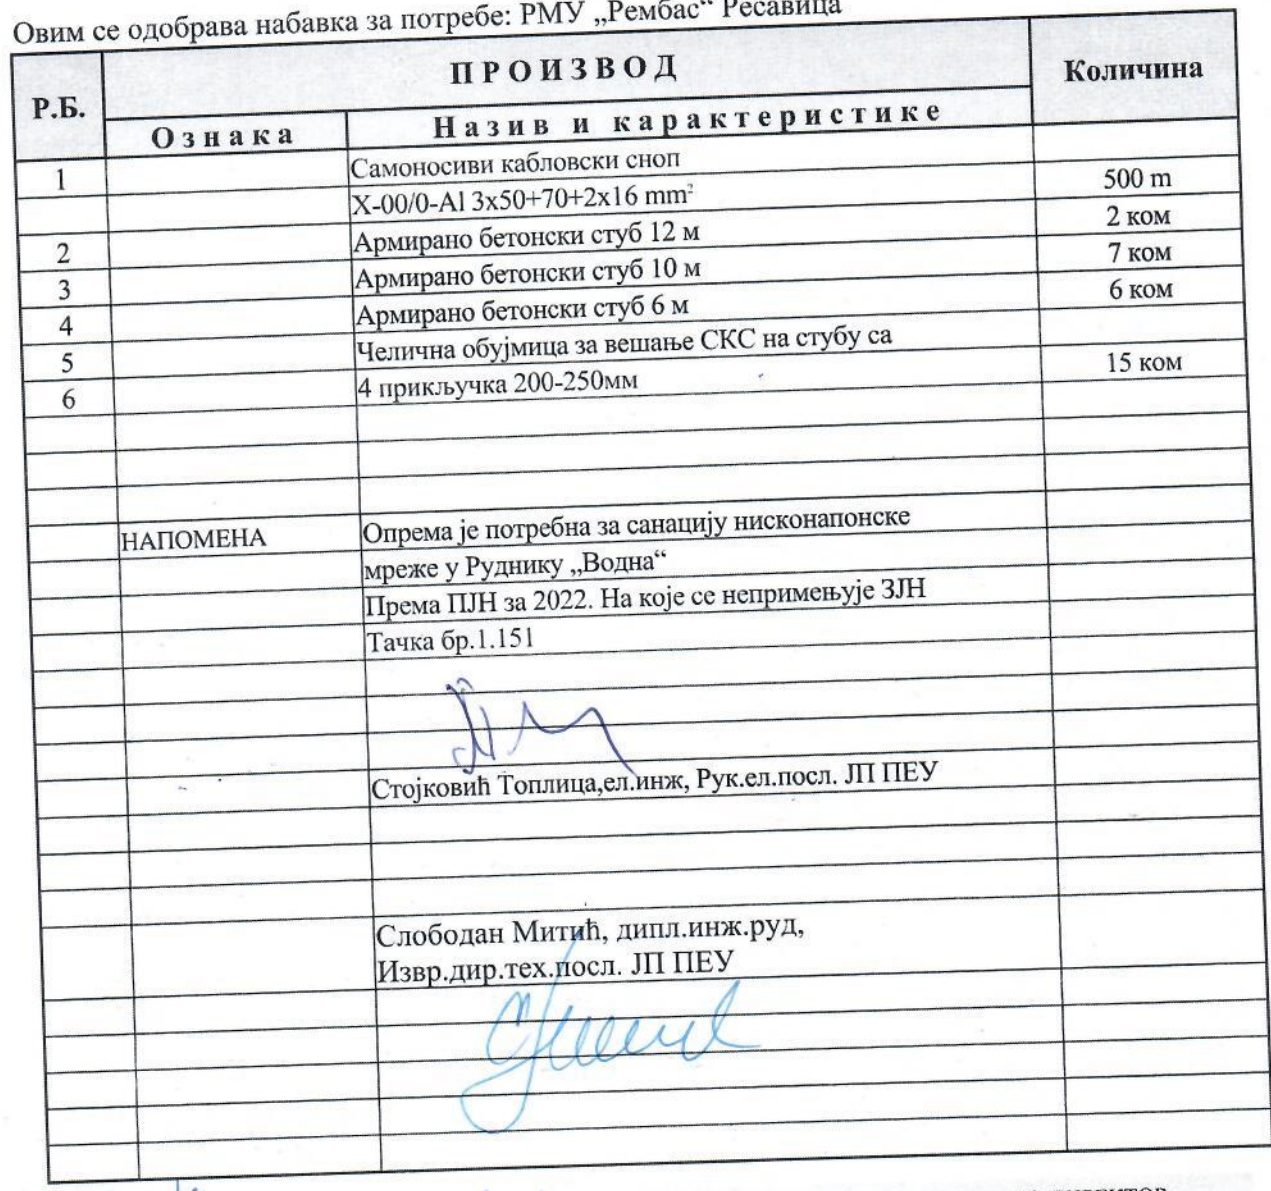 Овим се одобрава набавка за потребе: РМУ „Рембас“ Ресавица
Р.Б.
ПРОИЗВОД
Количина
Ознака
Назив и карактеристике
1
Самоносиви кабловски сноп
X-00/0-Al 3x50+70+2x16 mm²
500 m
2
Армирано бетонски стуб 12 м
2 ком
3
Армирано бетонски стуб 10 м
7 ком
4
Армирано бетонски стуб 6 м
6 ком
5
Челична обујмица за вешање СКС на стубу са
6
4 прикључка 200-250мм
15 ком
НАПОМЕНА
Опрема је потребна за санацију нисконапонске
мреже у Руднику „Водна“
Према ПЈН за 2022. На које се непримењује ЗЈН
Тачка бр.1.151
Стојковић Топлица,ел.инж, Рук.ел.посл. ЈП ПЕУ
Слободан Митић, дипл.инж.руд,
Извр.дир.тех.посл. ЈП ПЕУ